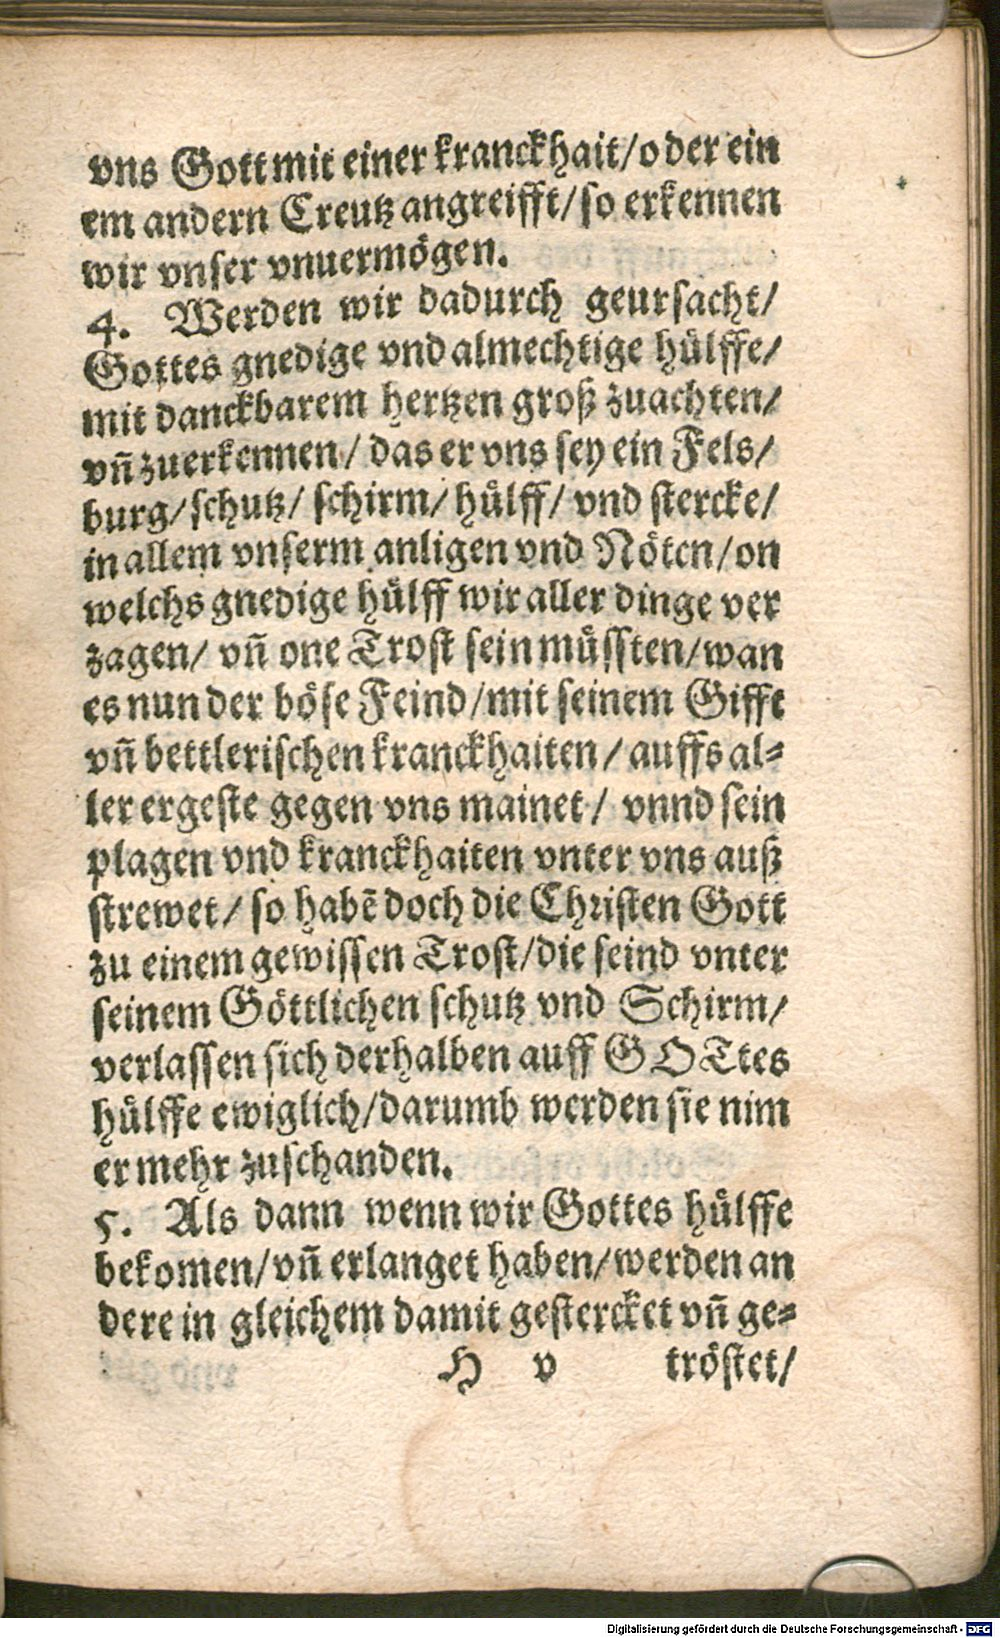 vns Gott mit einer kranckhait/oder ein
em andern Creutz angreifft/so erkennen
wir vnser vnuermögen.
4. Werden wir dadurch geursacht/
Gottes gnedige vnd almechtige hülffe/
mit danckbarem hertzen groß zuachten/
vñ zuerkennen/ das er vns sey ein Fels/
burg/schutz/ schirm/ hülff/ vnd stercke/
in allem vnserm anligen vnd Nöten/on
welchs gnedige hülff wir aller dinge ver
zagen/ vñ one Trost sein müssten/wan
es nun der böse Feind/mit seinem Gifft
vñ bettlerischen kranckhaiten/ auffs al-
ler ergeste gegen vns mainet/ vnnd sein
plagen vnd kranckhaiten vnter vns auß
strewet/ so habē doch die Christen Gott
zu einem gewissen Trost/die seind vnter
seinem Göttlichen schutz vnd Schirm/
verlassen sich derhalben auff GOTtes
hülffe ewiglich/darumb werden sie nim
er mehr zuschanden.
5. Als dann wenn wir Gottes hülffe
bekomen/vñ erlanget haben/werden an
dere in gleichem damit gestercket vñ ge-
H v tröstet/
Digitalisierung gefördert durch die Deutsche Forschungsgemeinschaft - DFG